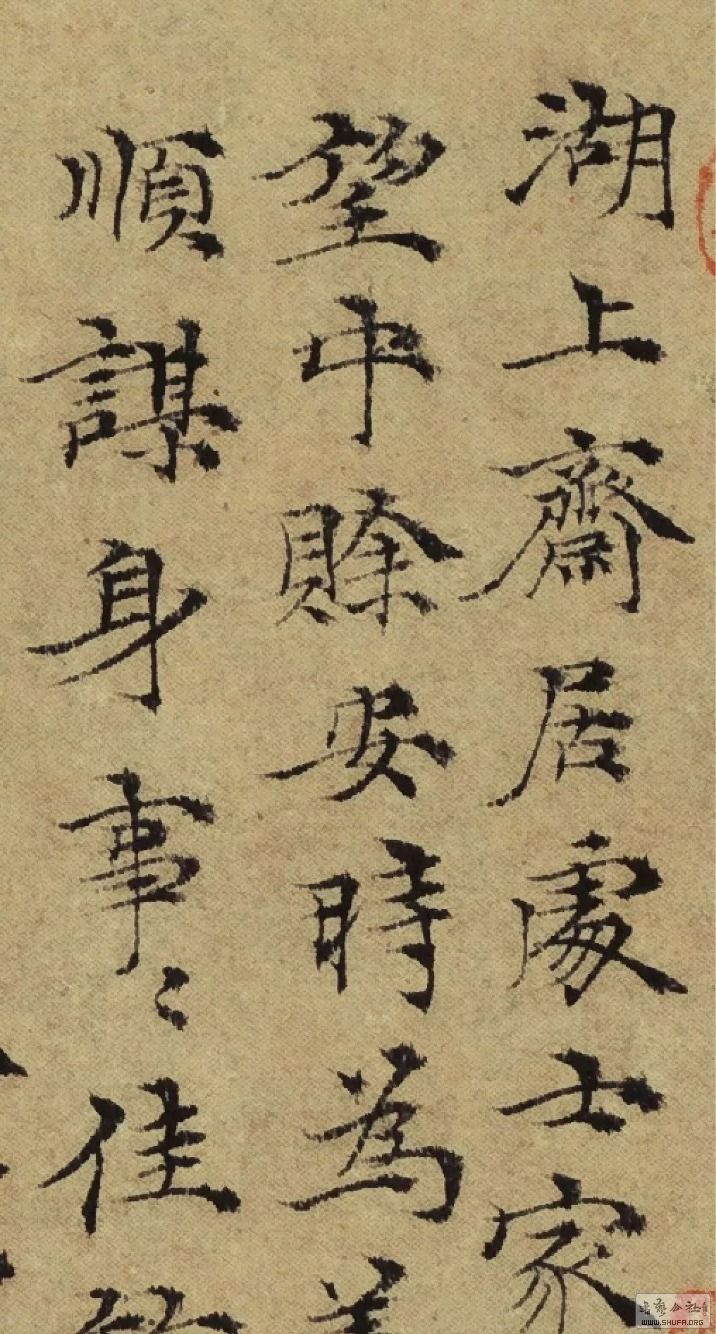 湖上齋居處士家
望中賒安時為
順謀身事〻佳
書藝公社
WWW.SHUFA.ORG